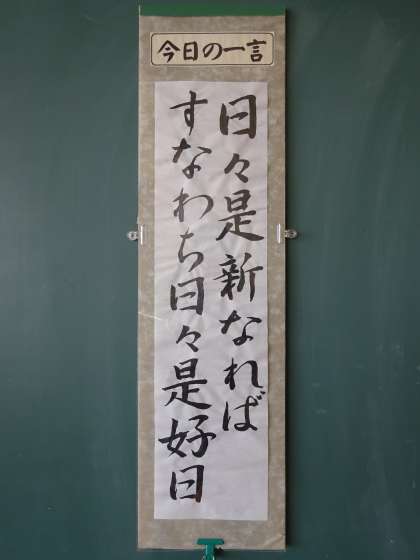 今日の一言
日々是新なれば
すなわち日々是好日